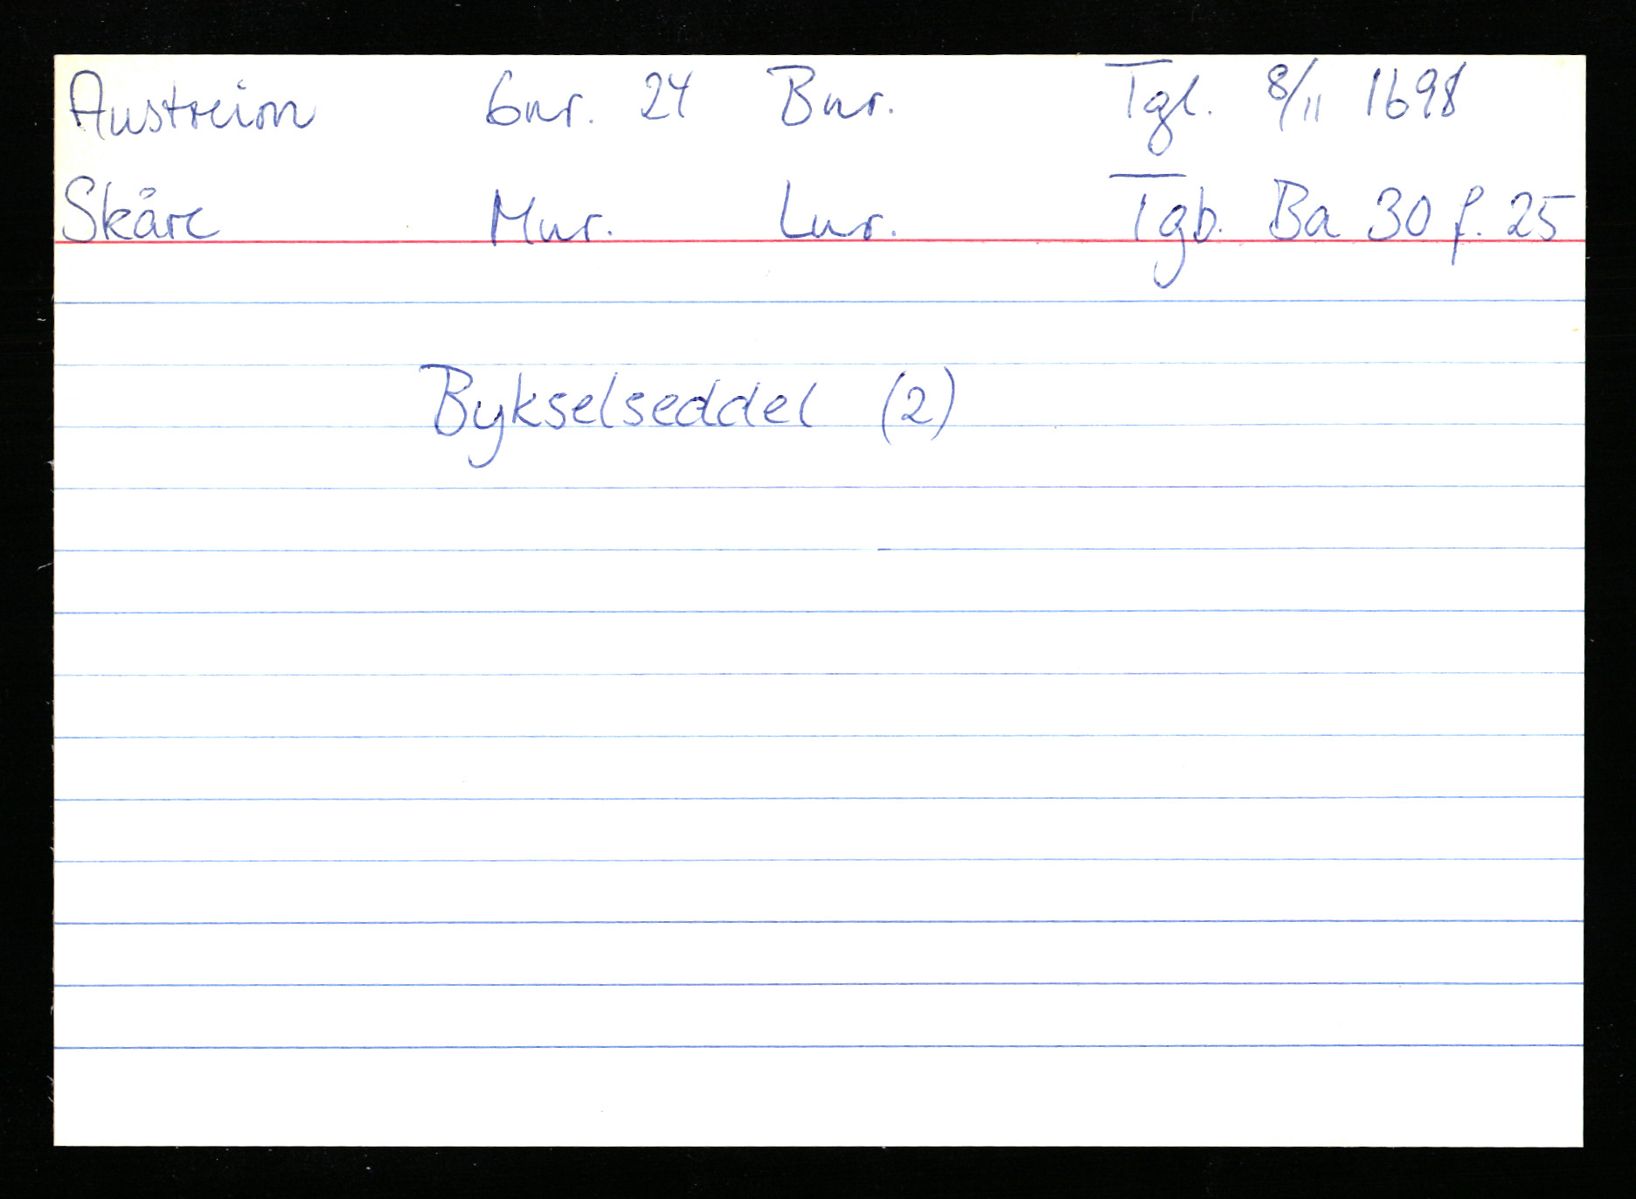 Austreim Gnr. 24 Bnr. Tgl. 8/11 1698
Skåre Mnr. Lnr. Tgb. Ba 30 f. 25
Bykselseddel (2)